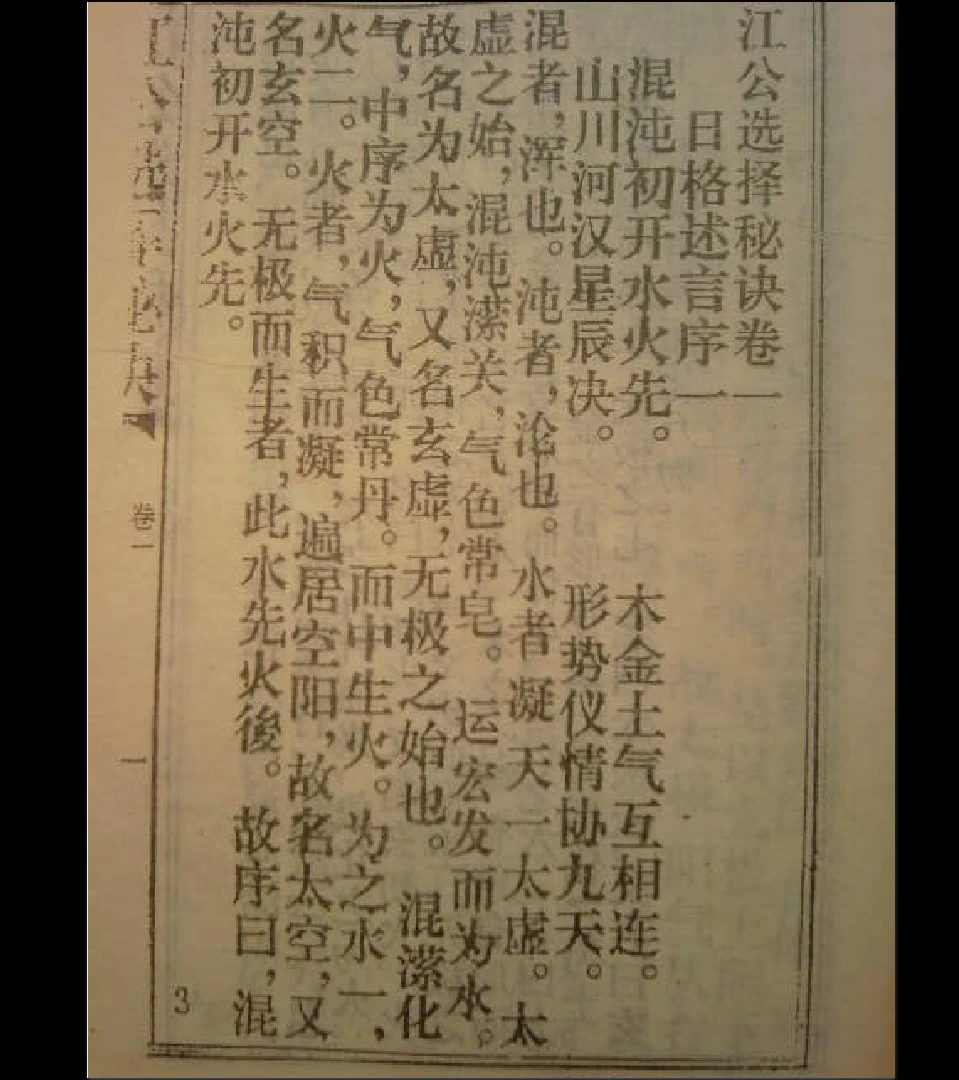 江公选择秘诀卷一
日格述言序一
混沌初开水火先。 木金土气互相连。
山川河汉星辰决。 形势仪情协九天。
混者，浑也。沌者，沦也。水者凝天一太虚。太
虚之始，混沌潆关，气色常皂。运宏发而为水。
故名为太虚，又名玄虚，无极之始也。混潆化
气，中序为火，气色常丹。而中生火。为之水一，
火二。火者，气积而凝，遍居空阳，故名太空，又
名玄空。无极而生者，此水先火後。故序曰，混
沌初开水火先。
卷一
一
3